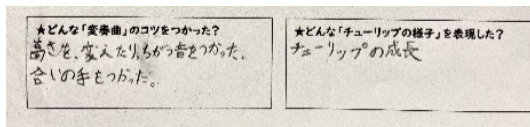 ★どんな「変奏曲」のコツをつかった?
高さを、変えたり、ちがう音をつかった。
合いの手をつかった。
★どんな「チューリップの様子」を表現した?
チューリップの成長